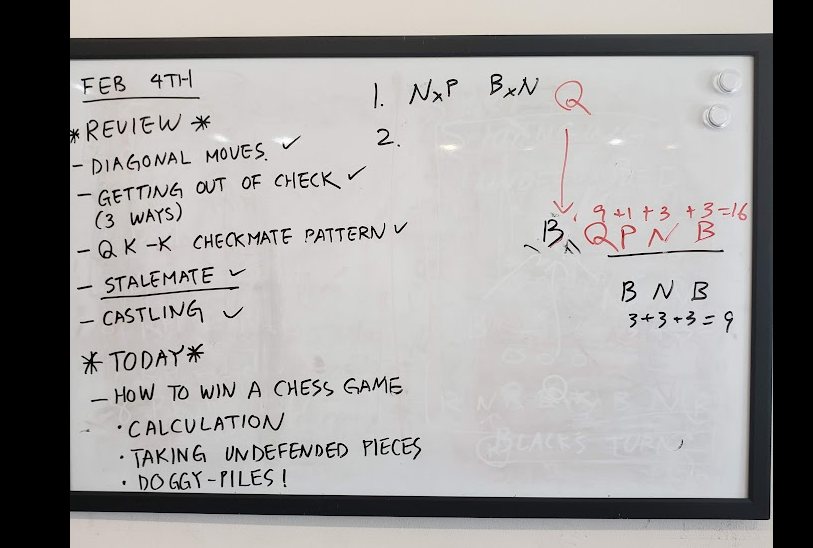 FEB 4TH
*REVIEW*
- DIAGONAL MOVES. ✓
- GETTING OUT OF CHECK ✓
(3 WAYS)
- QK-K CHECKMATE PATTERN ✓
- STALEMATE ✓
- CASTLING ✓
*TODAY*
- HOW TO WIN A CHESS GAME
· CALCULATION
· TAKING UNDEFENDED PIECES
· DOGGY-PILES!
1. NxP BxN
2.
Q
9+1+3+3=16
B Q P N B
B N B
3+3+3=9
BLACKS TURN